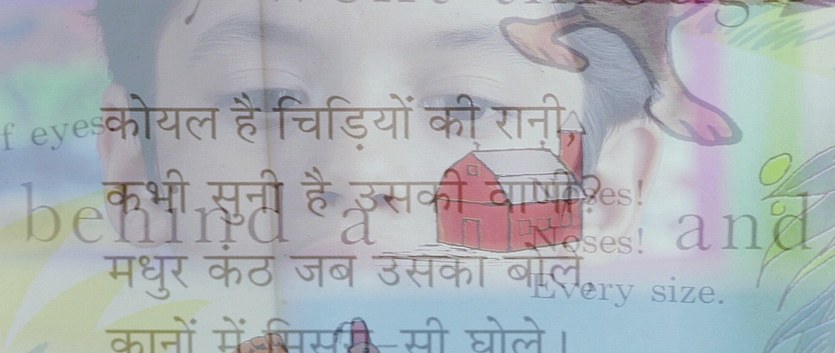 कोयल है चिड़ियों की रानी,
कभी सुनी है उसकी वाणी?
मधुर कंठ जब उसका बोले,
कानों में मिसरी-सी घोले।
f eyes
behind a and
Noses!
Noses!
Every size.